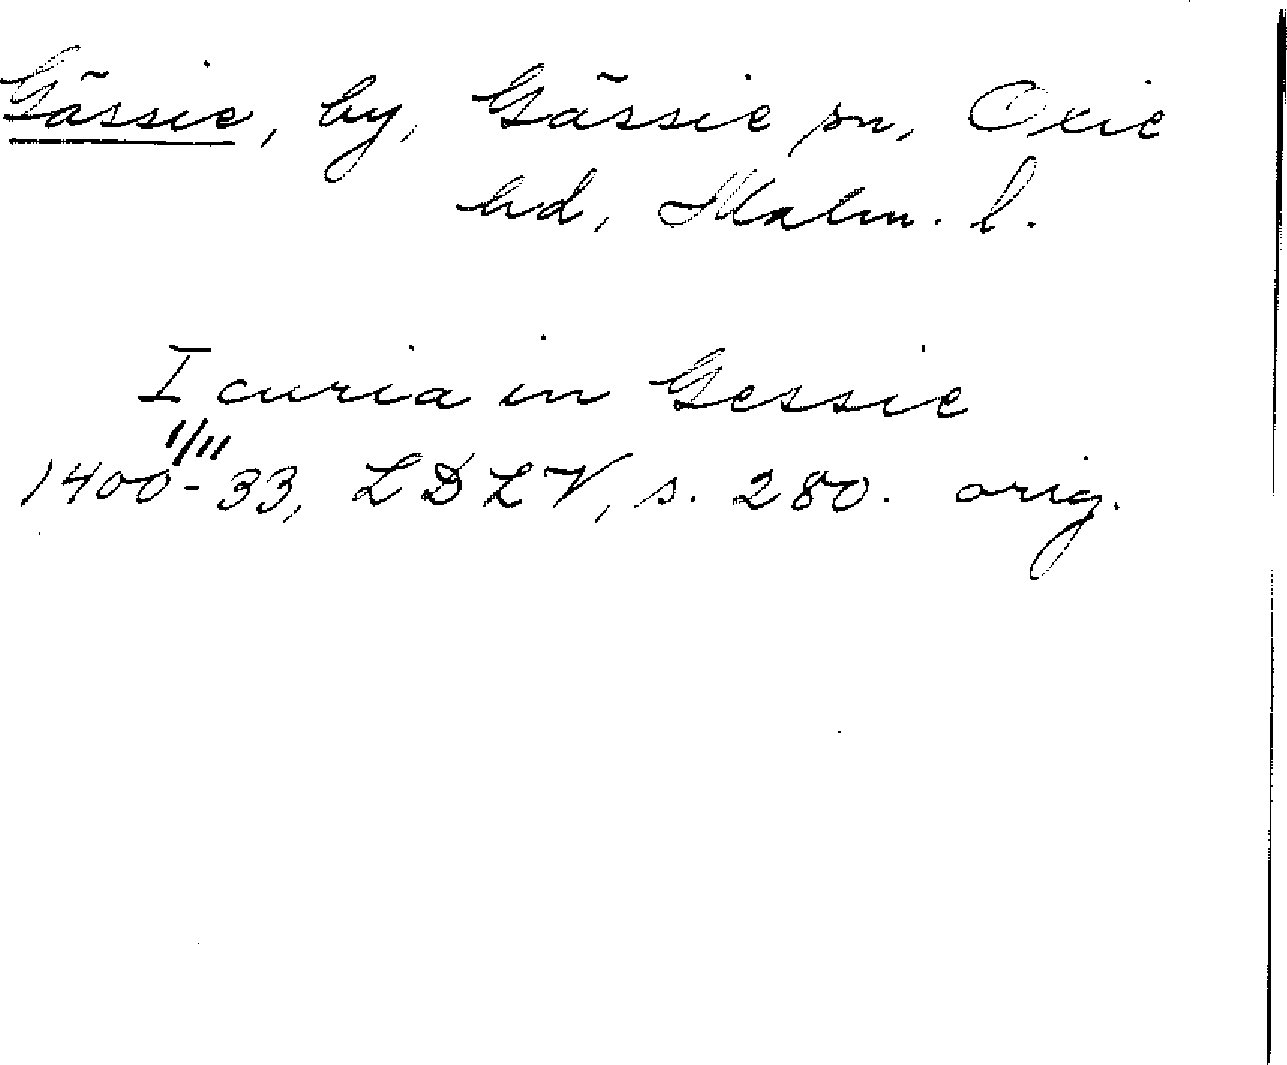 Gässie, by, Gässie sn, Oxie
hd, Malm. l.
I curia in Gessie
1/11
1400-33, LDLV, s. 280. orig.